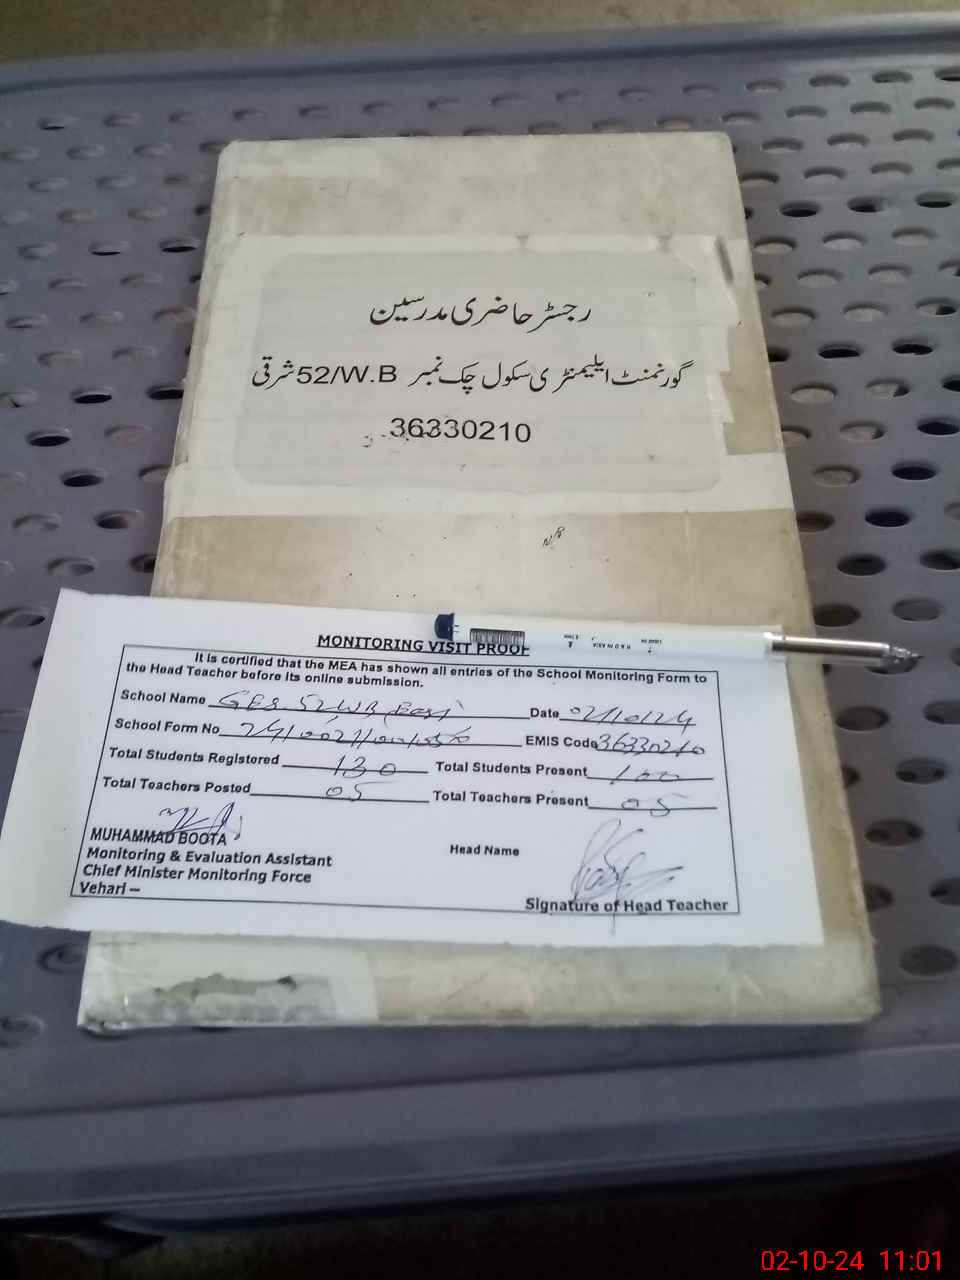 رجسٹر حاضری مدرسین
گورنمنٹ ایلیمنٹری سکول چک نمبر 52/W.B شرقی
36330210
MONITORING VISIT PROOF
It is certified that the MEA has shown all entries of the School Monitoring Form to
the Head Teacher before its online submission.
School Name GES 52/WB East Date 02/10/24
School Form No EMIS Code 36330210
Total Students Registered 130 Total Students Present 100
Total Teachers Posted 05 Total Teachers Present 05
MUHAMMAD BOOTA
Monitoring & Evaluation Assistant Head Name
Chief Minister Monitoring Force
Vehari – Signature of Head Teacher
02-10-24 11:01